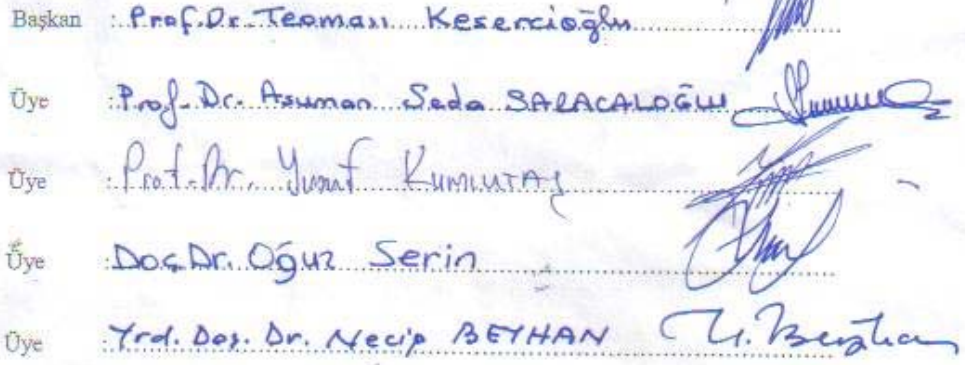 Başkan : Prof.Dr. Teoman Kesercioğlu
Üye : Prof. Dr. Asuman Seda SARACALOĞLU
Üye : Prof. Dr. Yusuf KUMLUTAŞ
Üye : Doç.Dr. Oğuz Serin
Üye : Yrd. Doç. Dr. Necip BEYHAN N. Beyhan